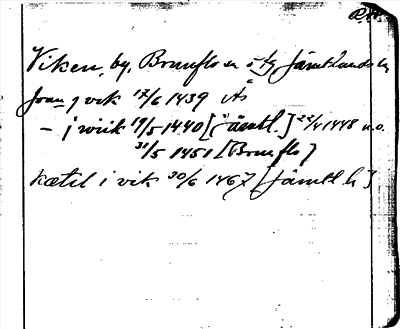 Viken, by, Brunflo sn o tg Jämtlands l.
Joan j vik 17/6 1439 Ås
— j wiik 19/5 1440 [Jämtl.] 22/4 1448 u.o.
31/5 1451 [Brunflo]
kætil i vik 30/6 1467 [Jämtl l.]